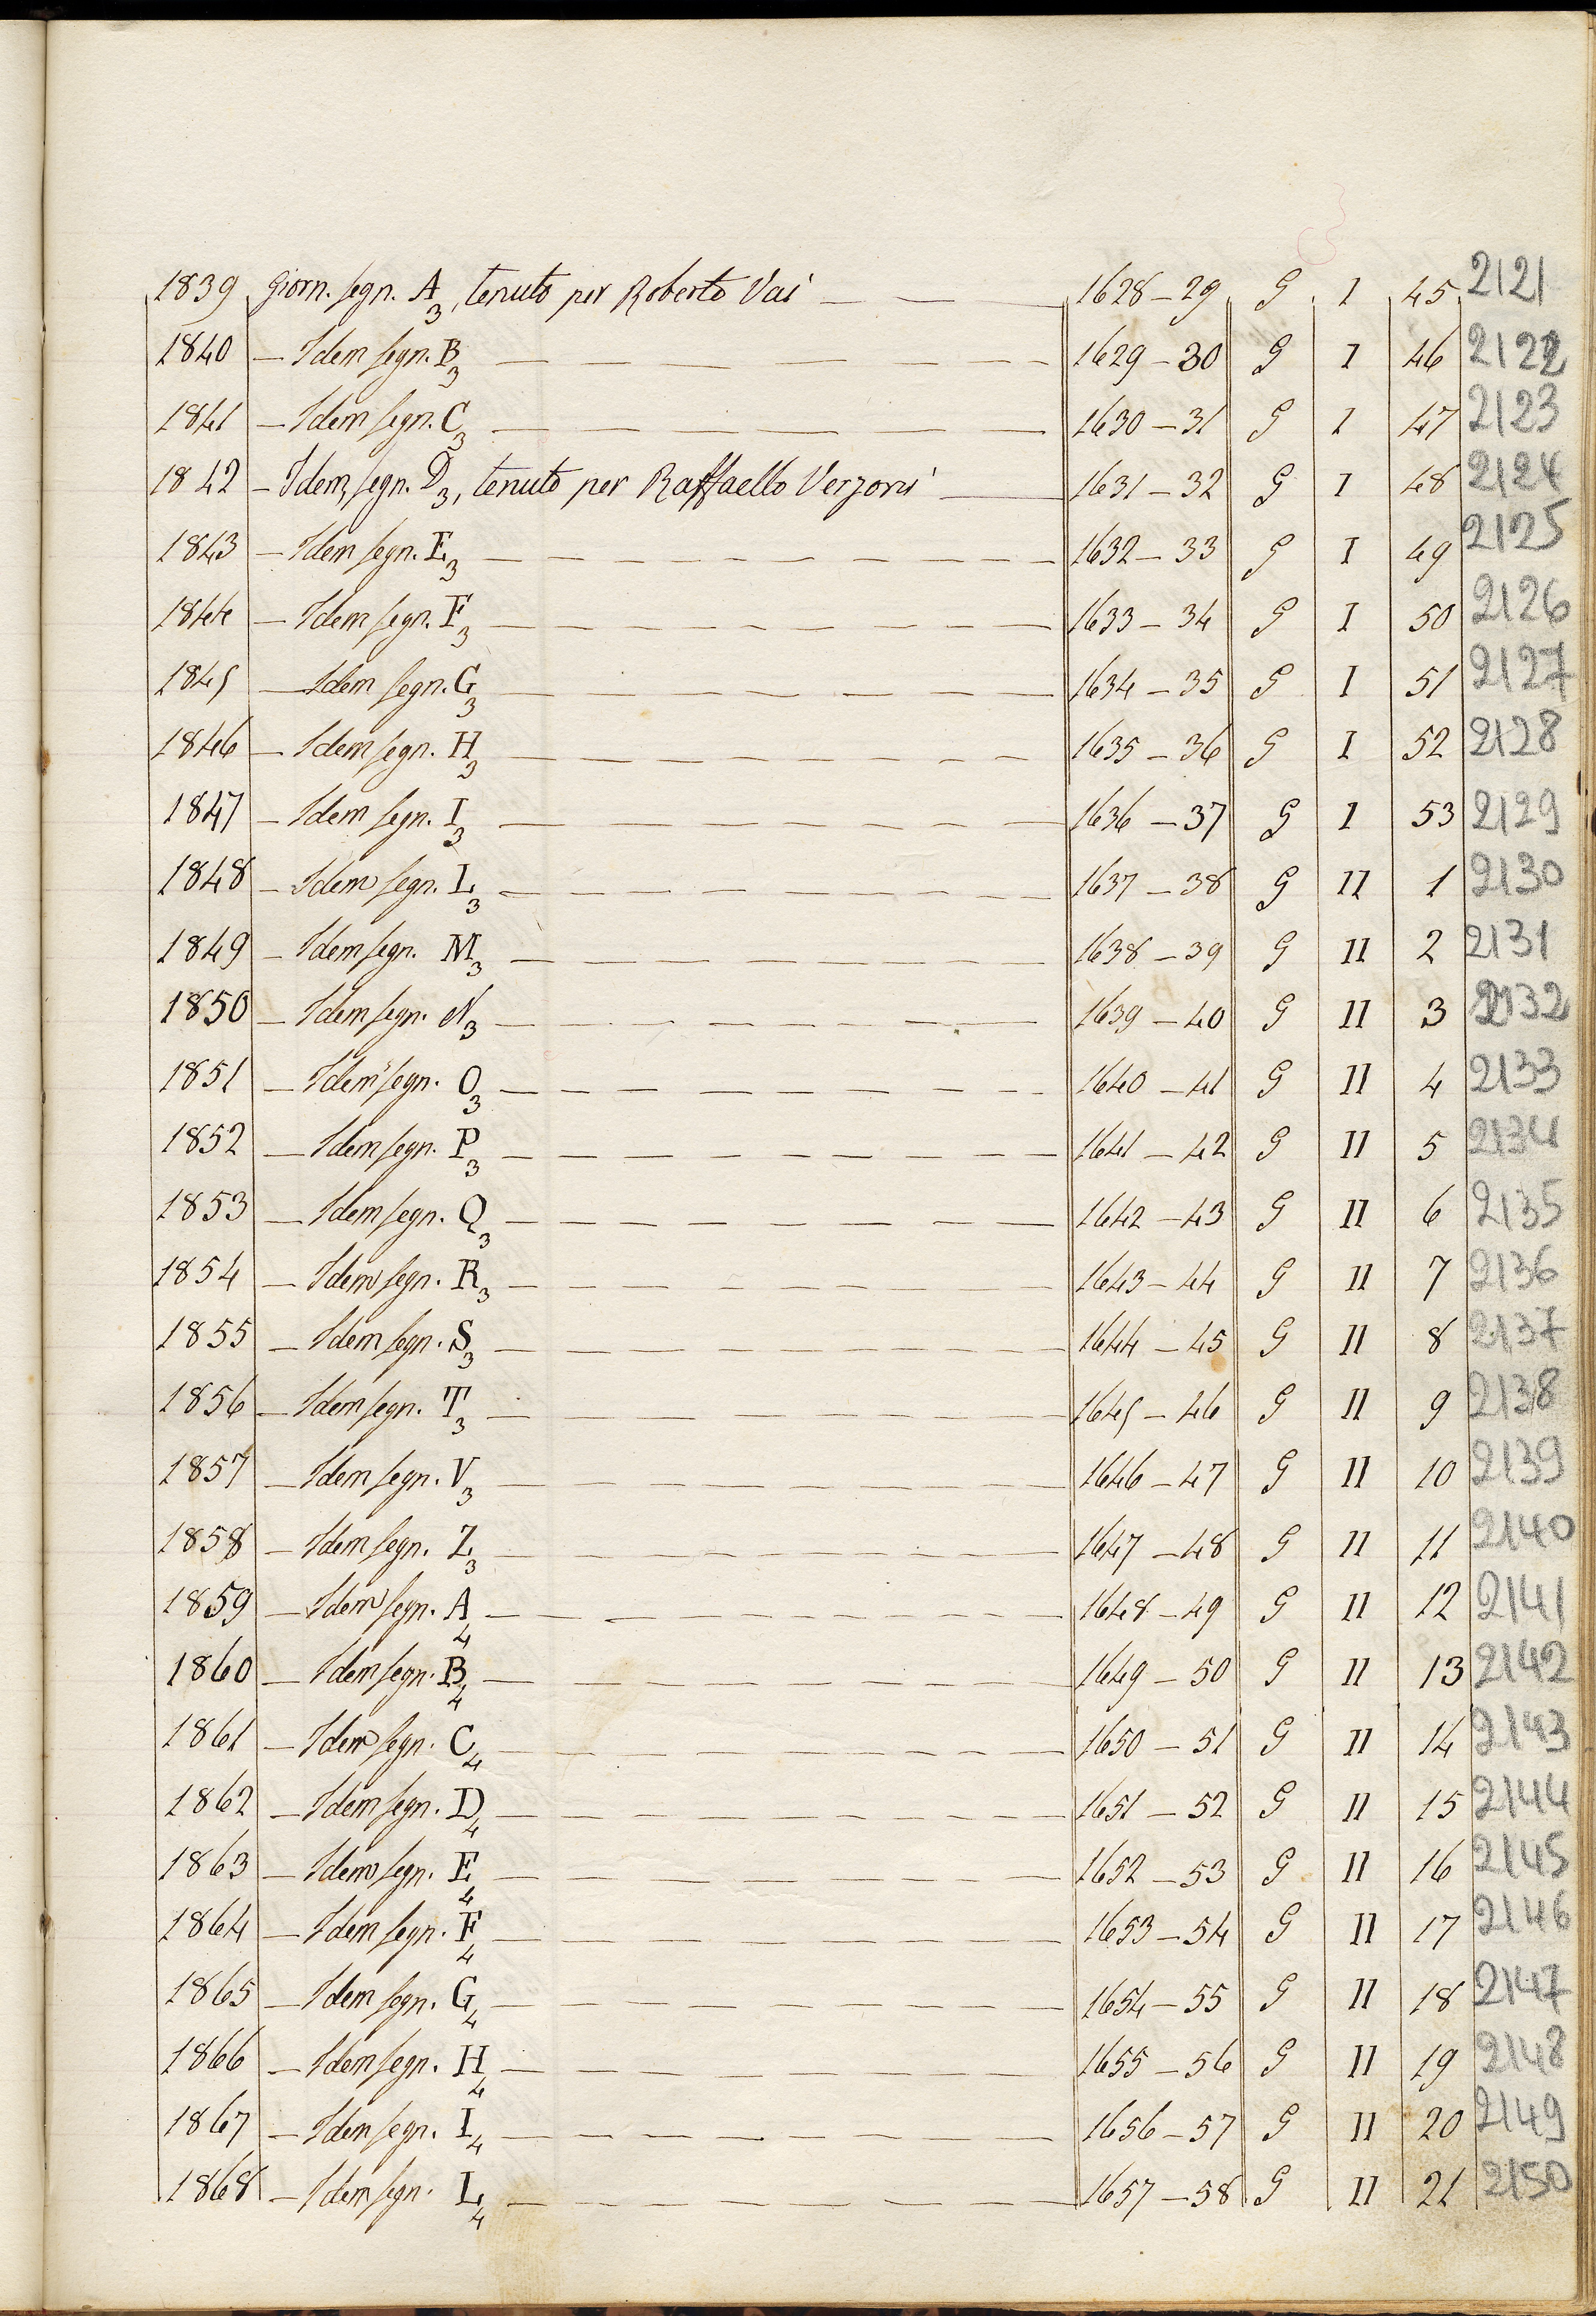 1839 Giorn. segn. A3, tenuto per Roberto Vai — — — 1628-29 G I 45 2121
1840 — Idem segn. B3 — — — — — — — 1629-30 G I 46 2122
1841 — Idem segn. C3 — — — — — — — 1630-31 G I 47 2123
1842 — Idem, segn. D3, tenuto per Raffaello Verzoni — — 1631-32 G I 48 2124
1843 — Idem segn. E3 — — — — — — — — — 1632-33 G I 49 2125
1844 — Idem segn. F3 — — — — — — — — 1633-34 G I 50 2126
1845 — Idem segn. G3 — — — — — — — — 1634-35 G I 51 2127
1846 — Idem segn. H3 — — — — — — — — 1635-36 G I 52 2128
1847 — Idem segn. I3 — — — — — — — — 1636-37 G I 53 2129
1848 — Idem segn. L3 — — — — — — — — 1637-38 G II 1 2130
1849 — Idem segn. M3 — — — — — — — — — 1638-39 G II 2 2131
1850 — Idem segn. N3 — — — — — — — — 1639-40 G II 3 2132
1851 — Idem segn. O3 — — — — — — — — — 1640-41 G II 4 2133
1852 — Idem segn. P3 — — — — — — — — — 1641-42 G II 5 2134
1853 — Idem segn. Q3 — — — — — — — — — 1642-43 G II 6 2135
1854 — Idem segn. R3 — — — — — — — — 1643-44 G II 7 2136
1855 — Idem segn. S3 — — — — — — — — — 1644-45 G II 8 2137
1856 — Idem segn. T3 — — — — — — — — — 1645-46 G II 9 2138
1857 — Idem segn. V3 — — — — — — — — 1646-47 G II 10 2139
1858 — Idem segn. Z3 — — — — — — — — — 1647-48 G II 11 2140
1859 — Idem segn. A4 — — — — — — — — — 1648-49 G II 12 2141
1860 — Idem segn. B4 — — — — — — — — — 1649-50 G II 13 2142
1861 — Idem segn. C4 — — — — — — — — — 1650-51 G II 14 2143
1862 — Idem segn. D4 — — — — — — — — — 1651-52 G II 15 2144
1863 — Idem segn. E4 — — — — — — — — — 1652-53 G II 16 2145
1864 — Idem segn. F4 — — — — — — — — — 1653-54 G II 17 2146
1865 — Idem segn. G4 — — — — — — — — — 1654-55 G II 18 2147
1866 — Idem segn. H4 — — — — — — — — — 1655-56 G II 19 2148
1867 — Idem segn. I4 — — — — — — — — — 1656-57 G II 20 2149
1868 — Idem segn. L4 — — — — — — — — — 1657-58 G II 21 2150